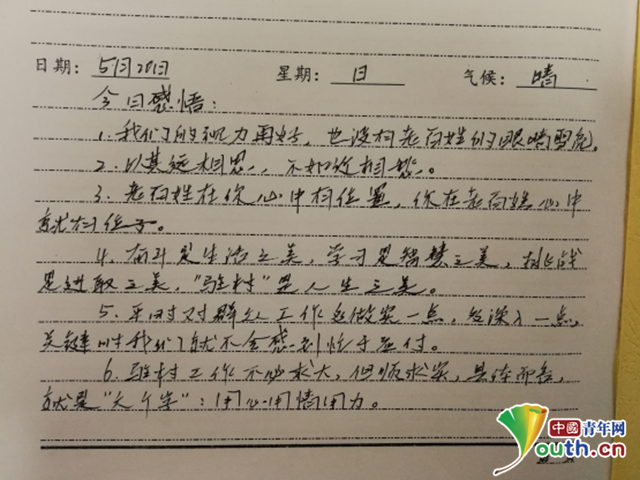 日期: 5月20日 星期: 日 气候: 晴
今日感悟:
1. 我们的视力再好，也没有老百姓的眼睛雪亮。
2. 与其远相思，不如近相想。
3. 老百姓在你心中有位置，你在老百姓心中
就有位子。
4. 奋斗是生活之美，学习是智慧之美，挑战
是进取之美，"驻村"是人生之美。
5. 平时对群众工作多做实一点，多深入一点，
关键时我们就不会感到忙于应付。
6. 驻村工作不必求大，但须求实，具体而言，
就是"六个字"：用心用情用力。
中国青年网
Youth.cn